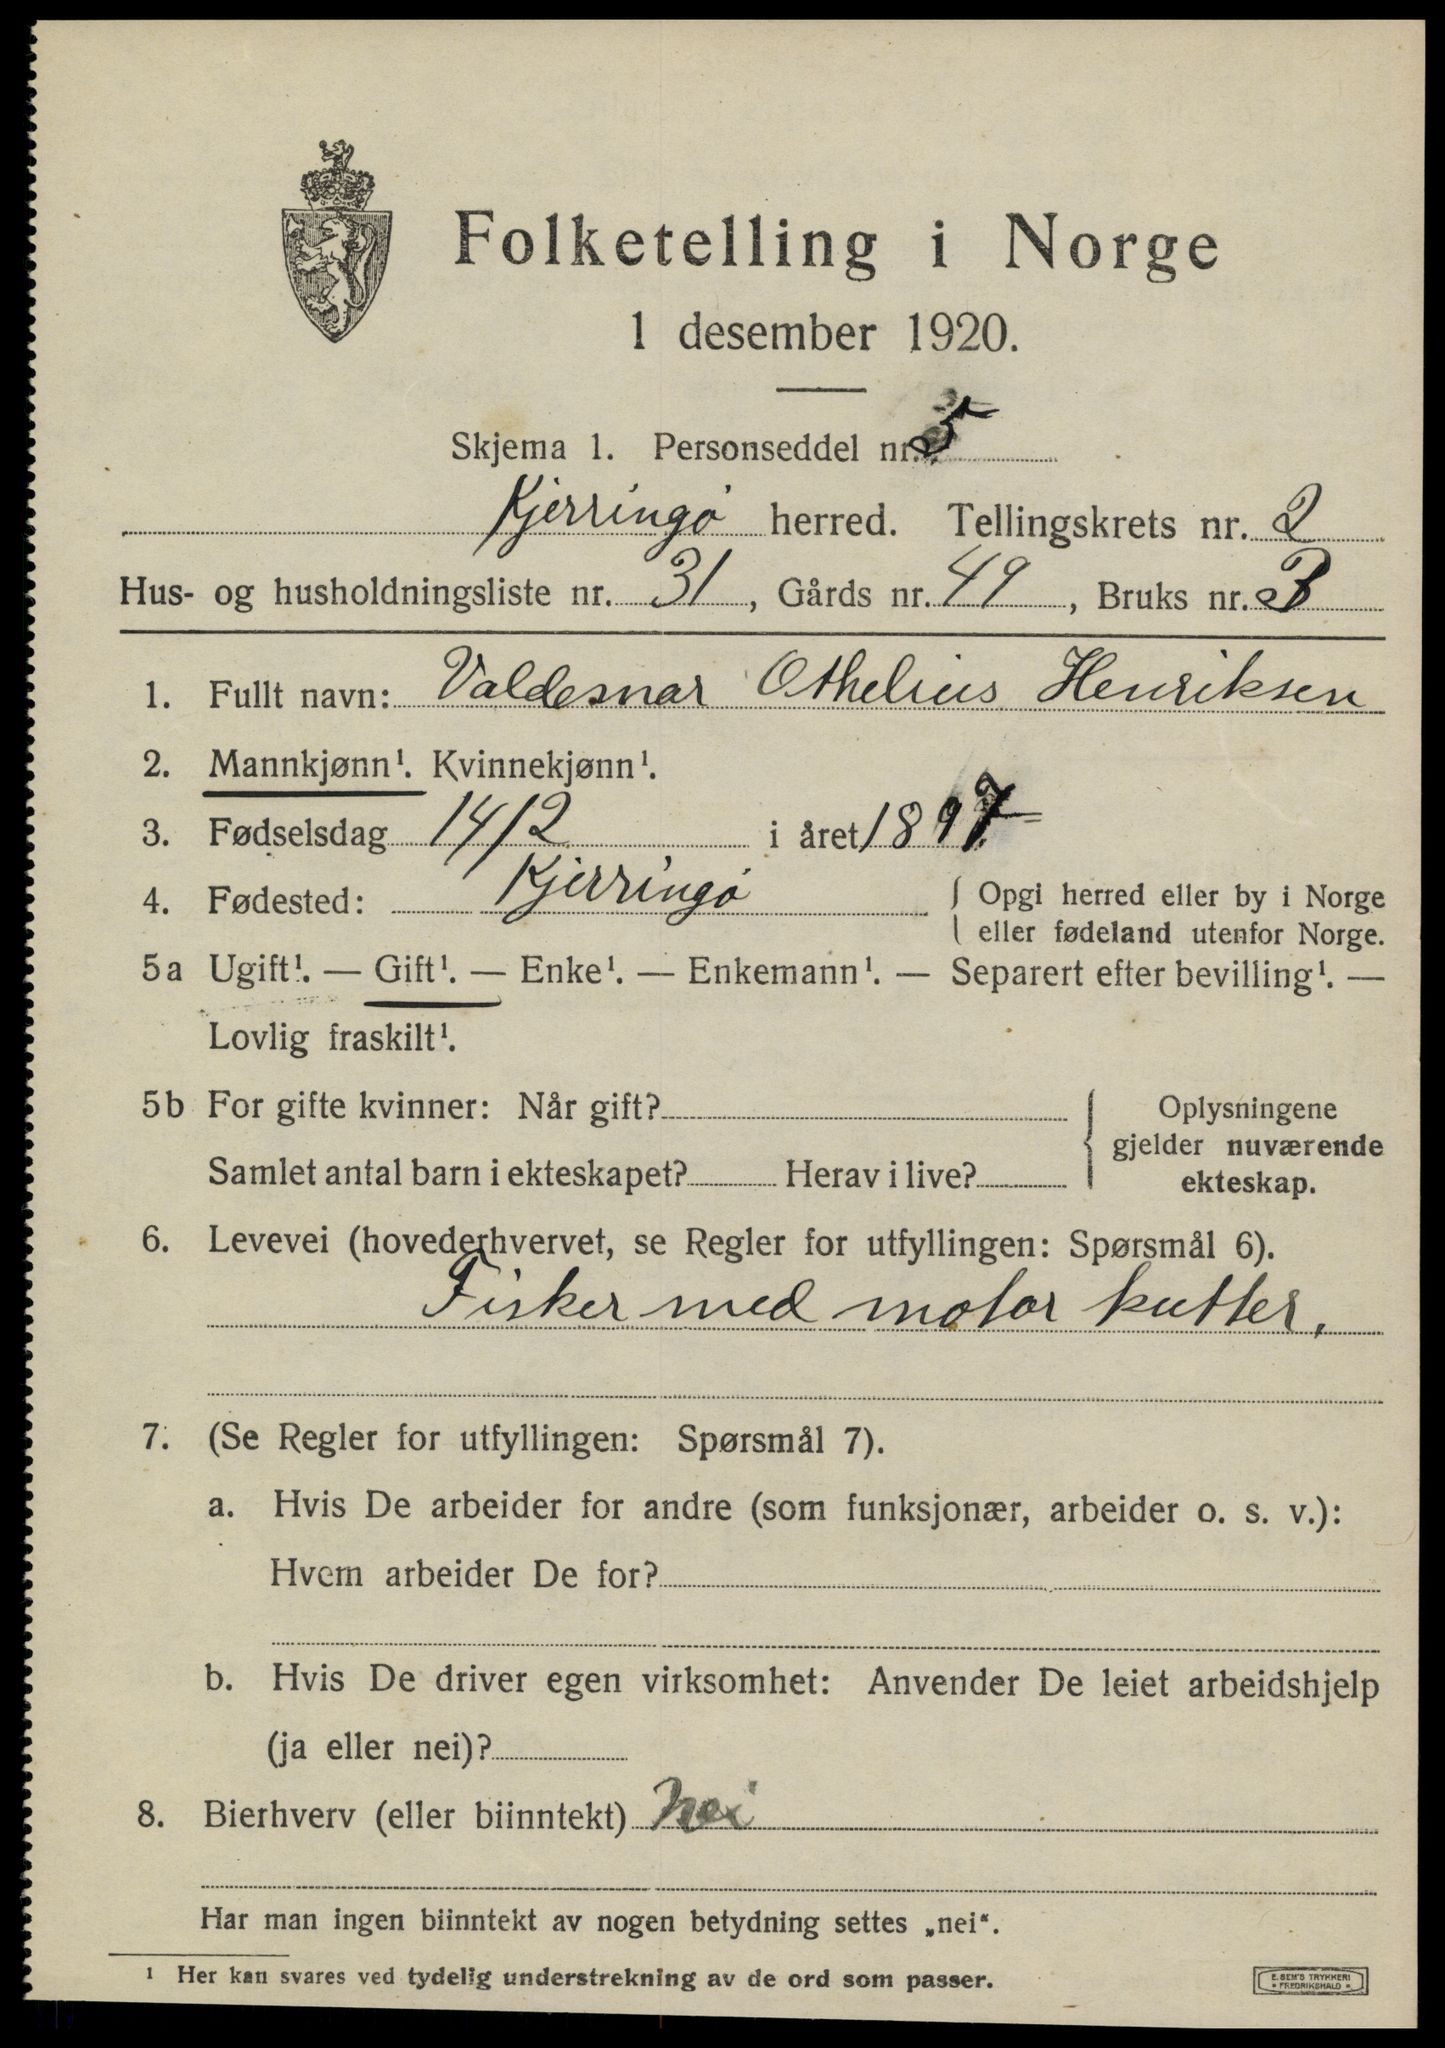 Folketelling i Norge
1 desember 1920.
Skjema 1. Personseddel nr. 5
Kjerringø herred. Tellingskrets nr. 2
Hus- og husholdningsliste nr. 31, Gårds nr. 49, Bruks nr. 3
1. Fullt navn: Valdemar Othelius Henriksen
2. Mannkjønn¹. Kvinnekjønn¹.
3. Fødselsdag 14/2 i året 1897
4. Fødested: Kjerringø { Opgi herred eller by i Norge
eller fødeland utenfor Norge.
5a Ugift¹. — Gift¹. — Enke¹. — Enkemann¹. — Separert efter bevilling¹. —
Lovlig fraskilt¹.
5b For gifte kvinner: Når gift? { Oplysningene
gjelder nuværende
Samlet antal barn i ekteskapet? Herav i live? ekteskap.
6. Levevei (hovederhvervet, se Regler for utfyllingen: Spørsmål 6).
Fisker med motor kutter.
7. (Se Regler for utfyllingen: Spørsmål 7).
a. Hvis De arbeider for andre (som funksjonær, arbeider o. s. v.):
Hvem arbeider De for?
b. Hvis De driver egen virksomhet: Anvender De leiet arbeidshjelp
(ja eller nei)?
8. Bierhverv (eller biinntekt) Nei
Har man ingen biinntekt av nogen betydning settes „nei“.
¹ Her kan svares ved tydelig understrekning av de ord som passer.
E. SEM'S TRYKKERI
• FREDRIKSHALD •